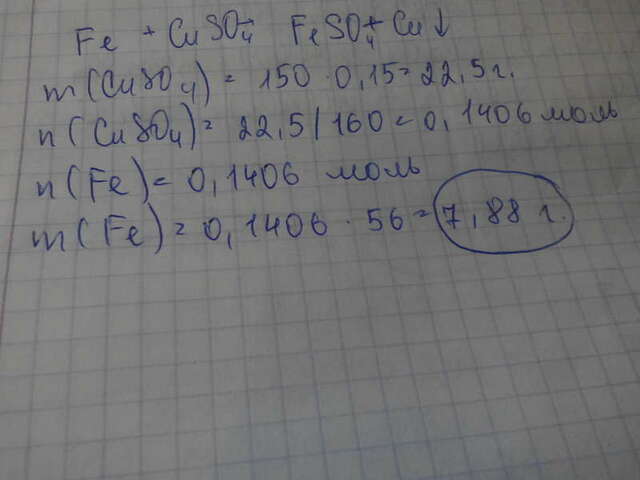 Fe + CuSO₄ → FeSO₄ + Cu↓
m(CuSO₄) = 150 · 0,15 = 22,5 г.
n(CuSO₄) = 22,5 / 160 = 0,1406 моль
n(Fe) = 0,1406 моль
m(Fe) = 0,1406 · 56 = 7,88 г.